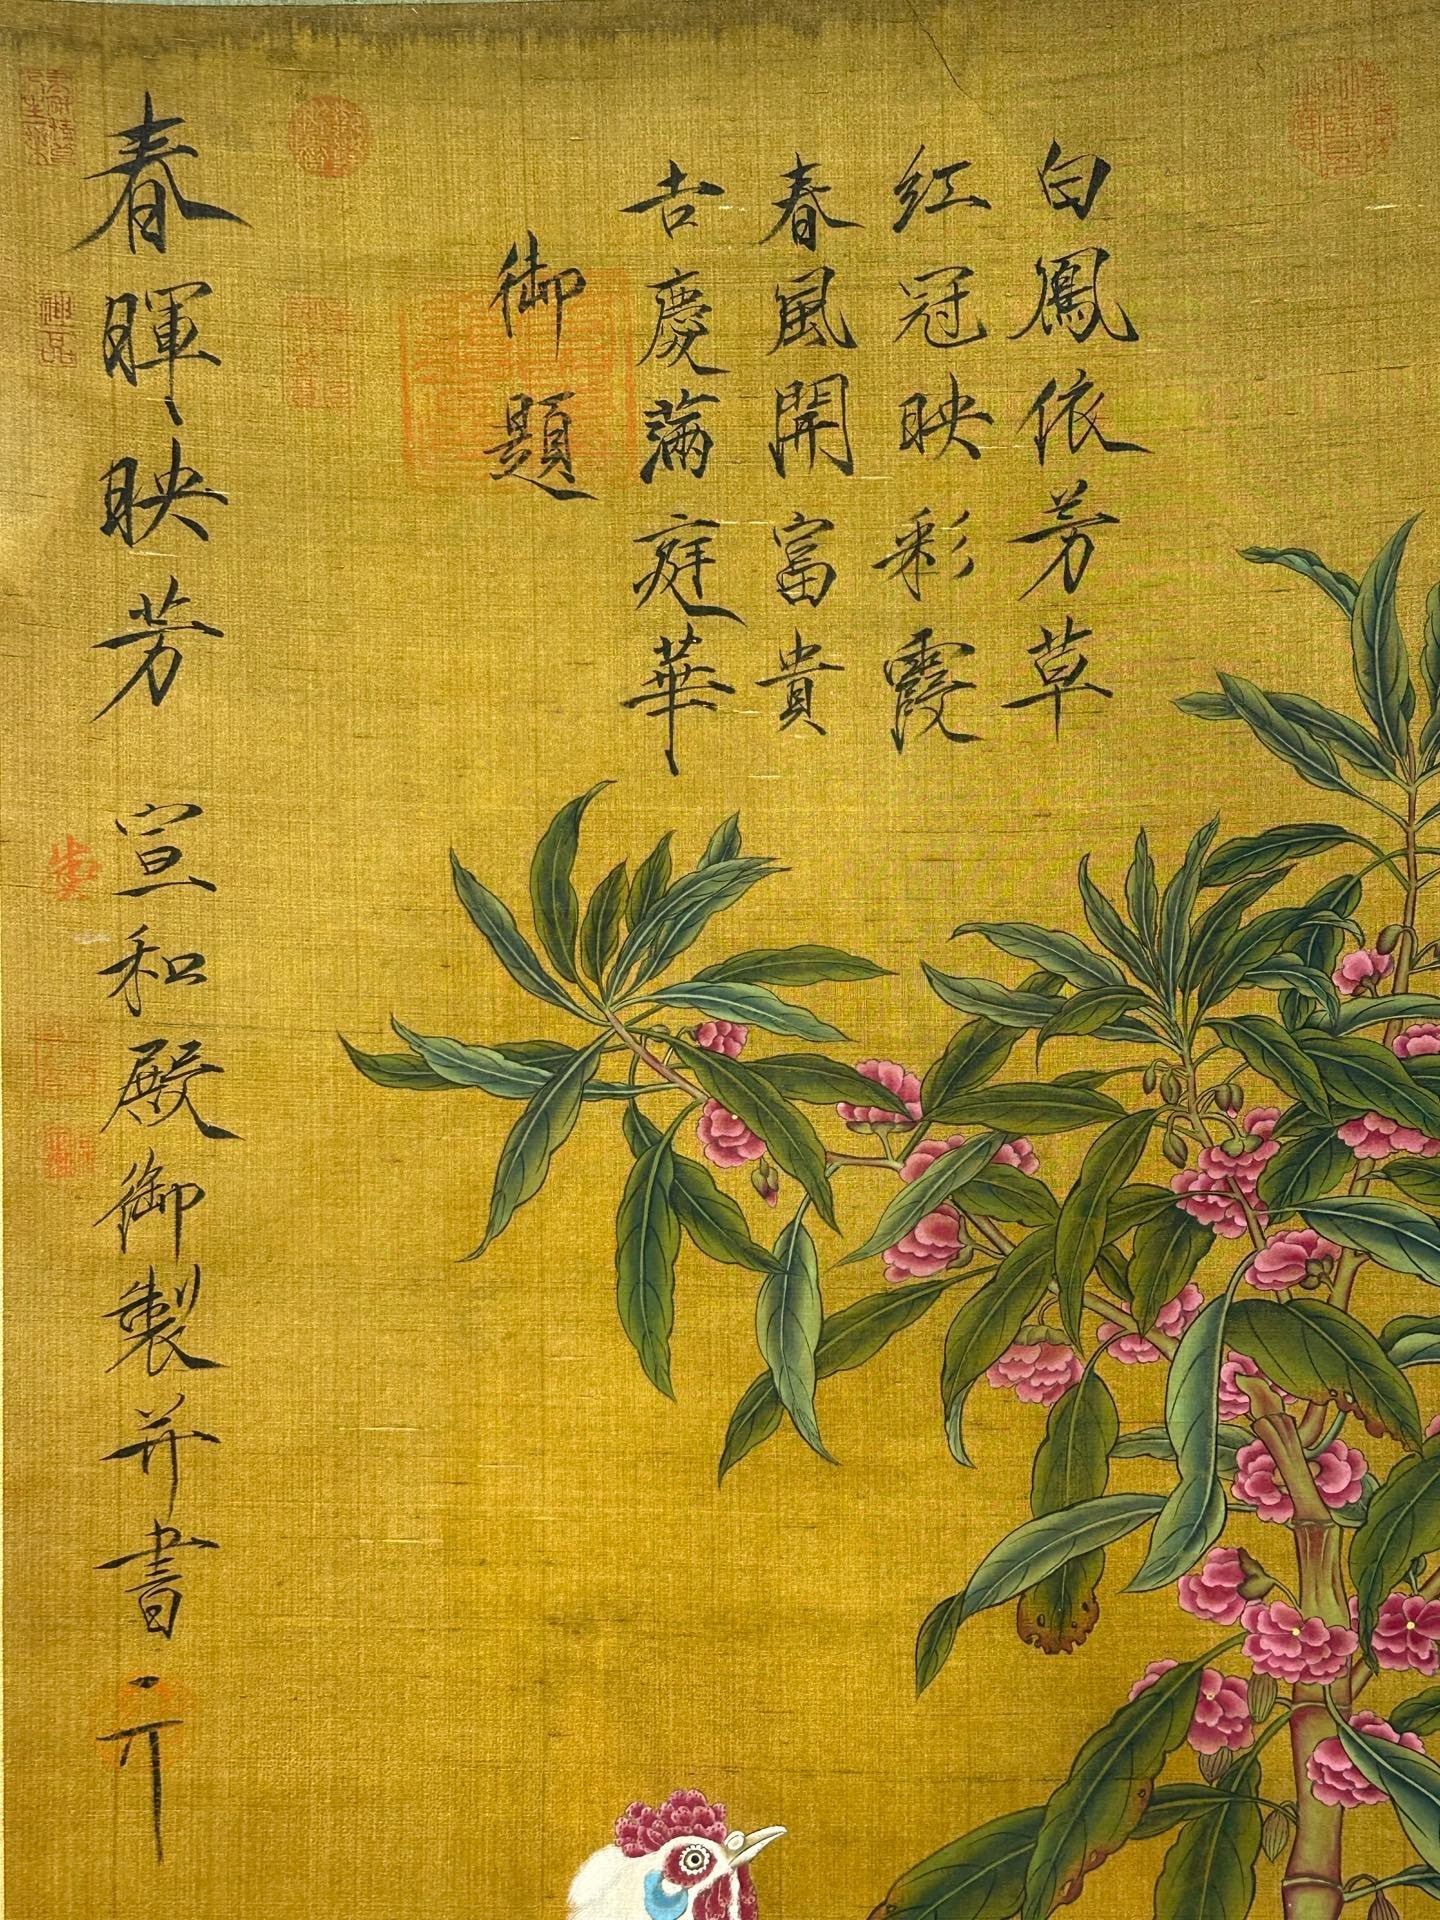 白鳳依芳草
紅冠映彩霞
春風開富貴
吉慶滿庭華
御題
春暉映芳
宣和殿御製并書
神品